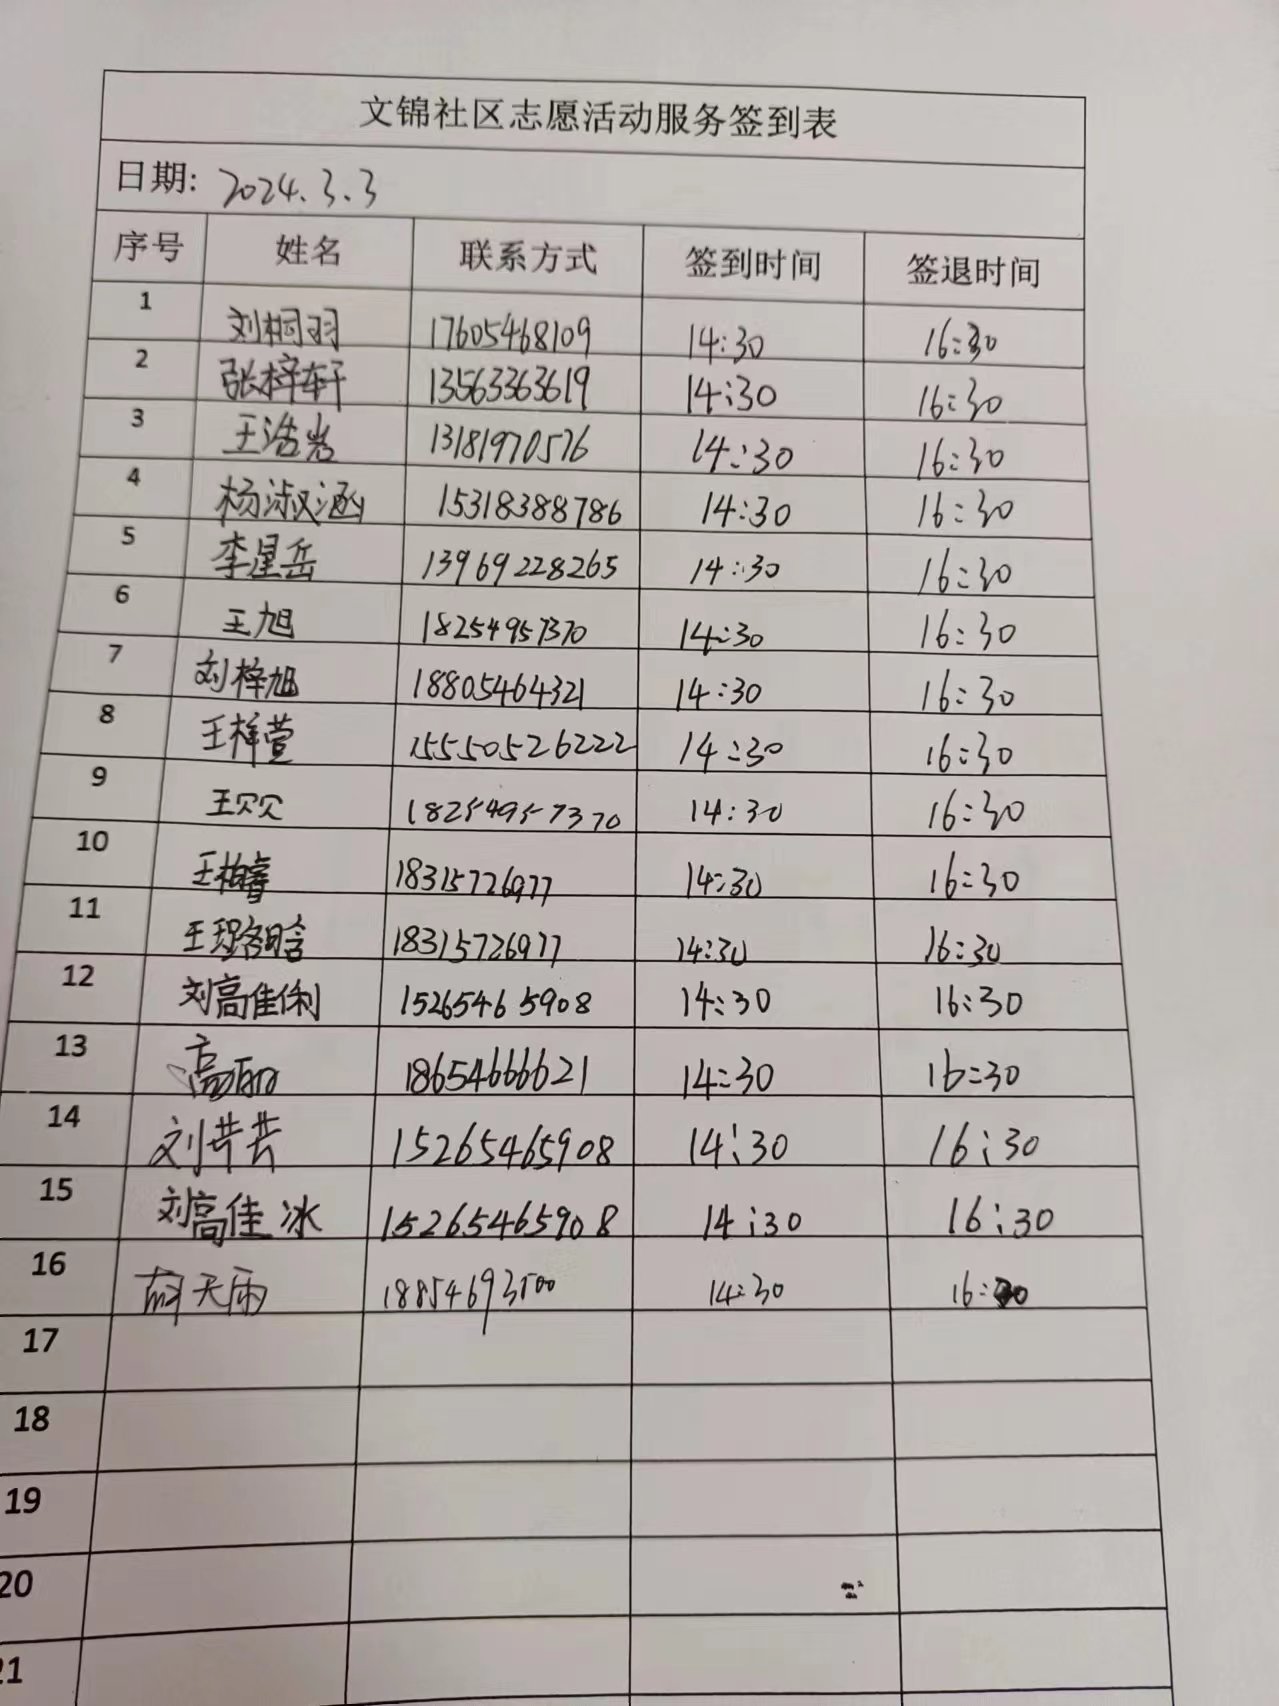 文锦社区志愿活动服务签到表
日期: 2024.3.3
序号 姓名 联系方式 签到时间 签退时间
1 刘桐羽 17605468109 14:30 16:30
2 张梓轩 13563363619 14:30 16:30
3 王浩岩 13181970576 14:30 16:30
4 杨淑涵 15318388786 14:30 16:30
5 李星岳 13969228265 14:30 16:30
6 王旭 18254957370 14:30 16:30
7 刘梓旭 18805464321 14:30 16:30
8 王梓萱 15550526222 14:30 16:30
9 王贝贝 18254957370 14:30 16:30
10 王柏睿 18315726977 14:30 16:30
11 18315726977 14:30 16:30
12 刘高佳俐 15265465908 14:30 16:30
13 高丽 18654666621 14:30 16:30
14 刘芸芸 15265465908 14:30 16:30
15 刘高佳冰 15265465908 14:30 16:30
16 天雨 18854693500 14:30 16:30
17
18
19
20
21